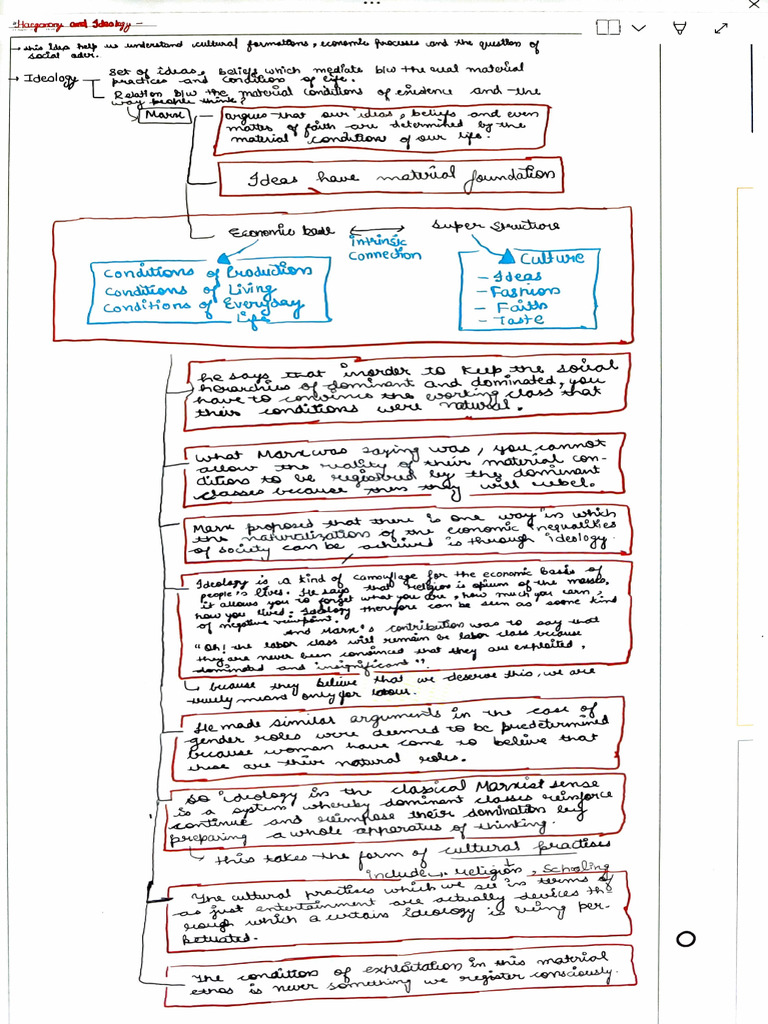 "Hegemony and Ideology –
→ this idea help us understand cultural formations, economic processes and the question of
social
→ Ideology
Set of ideas, beliefs which mediate b/w the real material
practices and conditions of life.
Relation b/w the material conditions of existence and the
way people think?
Marx
argues that our ideas, beliefs and even
matters of faith are determined by the
material condition of our life.
Ideas have material foundation
Economic base ↔ Super Structure
intrinsic
connection
Conditions of Production
Conditions of Living
Conditions of Everyday
Life
Culture
– Ideas
– Fashion
– Faith
– Taste
he says that inorder to keep the social
hierarchies of dominant and dominated, you
have to convince the working class that
their conditions were natural.
What Marx was saying was, you cannot
allow the reality of their material con-
ditions to be registered by the dominant
classes because then they will rebel.
Marx proposed that there is one way in which
the naturalization of the economic inequalities
of society can be achieved is through ideology.
Ideology is a kind of camouflage for the economic basis of
people's lives. He says that religion is opium of the masses,
it allows you to forget what you are, how much you earn,
how you lived. Ideology therefore can be seen as some kind
of negative viewpoint.
And Marx's contribution was to say that
"Oh! the labor class will remain be labor class because
they are never been convinced that they are exploited,
dominated and insignificant".
↳ because they believe that we deserve this, we are
only for labour.
He made similar arguments in the case of
gender roles were deemed to be predetermined
because woman have come to believe that
these are their natural roles.
So ideology in the classical Marxist sense
is a system whereby dominant classes reinforce
continue and reimpose their domination by
preparing a whole apparatus of thinking.
↳ this takes the form of cultural practises
include, religion, schooling
The cultural practises which we see in terms of
as just entertainment are actually devices th
rough which a certain ideology is being per-
petuated.
The condition of exploitation in this material
ethos is never something we register consciously.